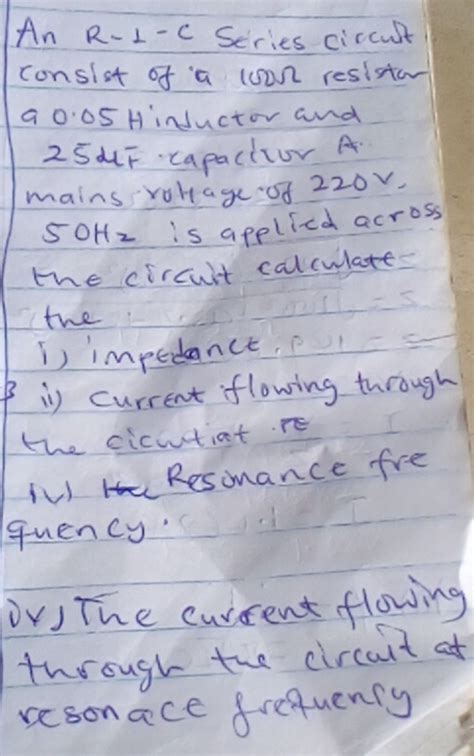 An R-L-C Series circuit
consist of a 100Ω resistor
a 0.05H inductor and
25μF capacitor A.
mains voltage of 220V.
50Hz is applied across
the circuit calculate
the
i) impedance.
ii) current flowing through
the
iv) Resonance fre
quency.
iv) The current flowing
through the circuit at
resonace frequency